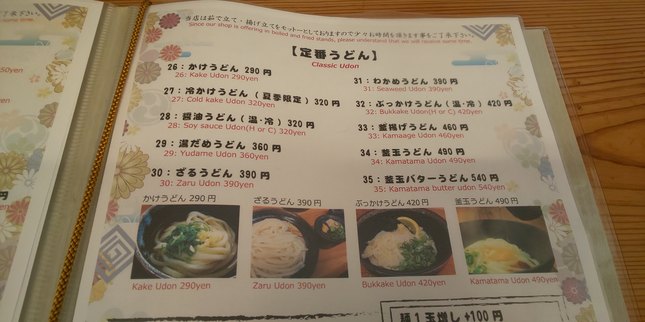 当店は茹で立て・揚げ立てをモットーとしておりますので少々お時間を頂きます事をご了承下さい。
Since our shop is offering in boiled and fried stands, please understand that we will receive some time.
【定番うどん】
Classic Udon
26：かけうどん 290 円
26: Kake Udon 290yen
27：冷かけうどん（夏季限定）320 円
27: Cold kake Udon 320yen
28：醤油うどん（温・冷）320 円
28: Soy sauce Udon(H or C) 320yen
29：湯だめうどん 360 円
29: Yudame Udon 360yen
30：ざるうどん 390 円
30: Zaru Udon 390yen
31：わかめうどん 390 円
31: Seaweed Udon 390yen
32：ぶっかけうどん（温・冷）420 円
32: Bukkake Udon(H or C) 420yen
33：釜揚げうどん 460 円
33: Kamaage Udon 460yen
34：釜玉うどん 490 円
34: Kamatama Udon 490yen
35：釜玉バターうどん 540 円
35: Kamatama butter udon 540yen
かけうどん 290 円
ざるうどん 390 円
ぶっかけうどん 420 円
釜玉うどん 490 円
Kake Udon 290yen
Zaru Udon 390yen
Bukkake Udon 420yen
Kamatama Udon 490yen
麺１玉増し +100 円
了承下さい。
me time.
50yen
390yen